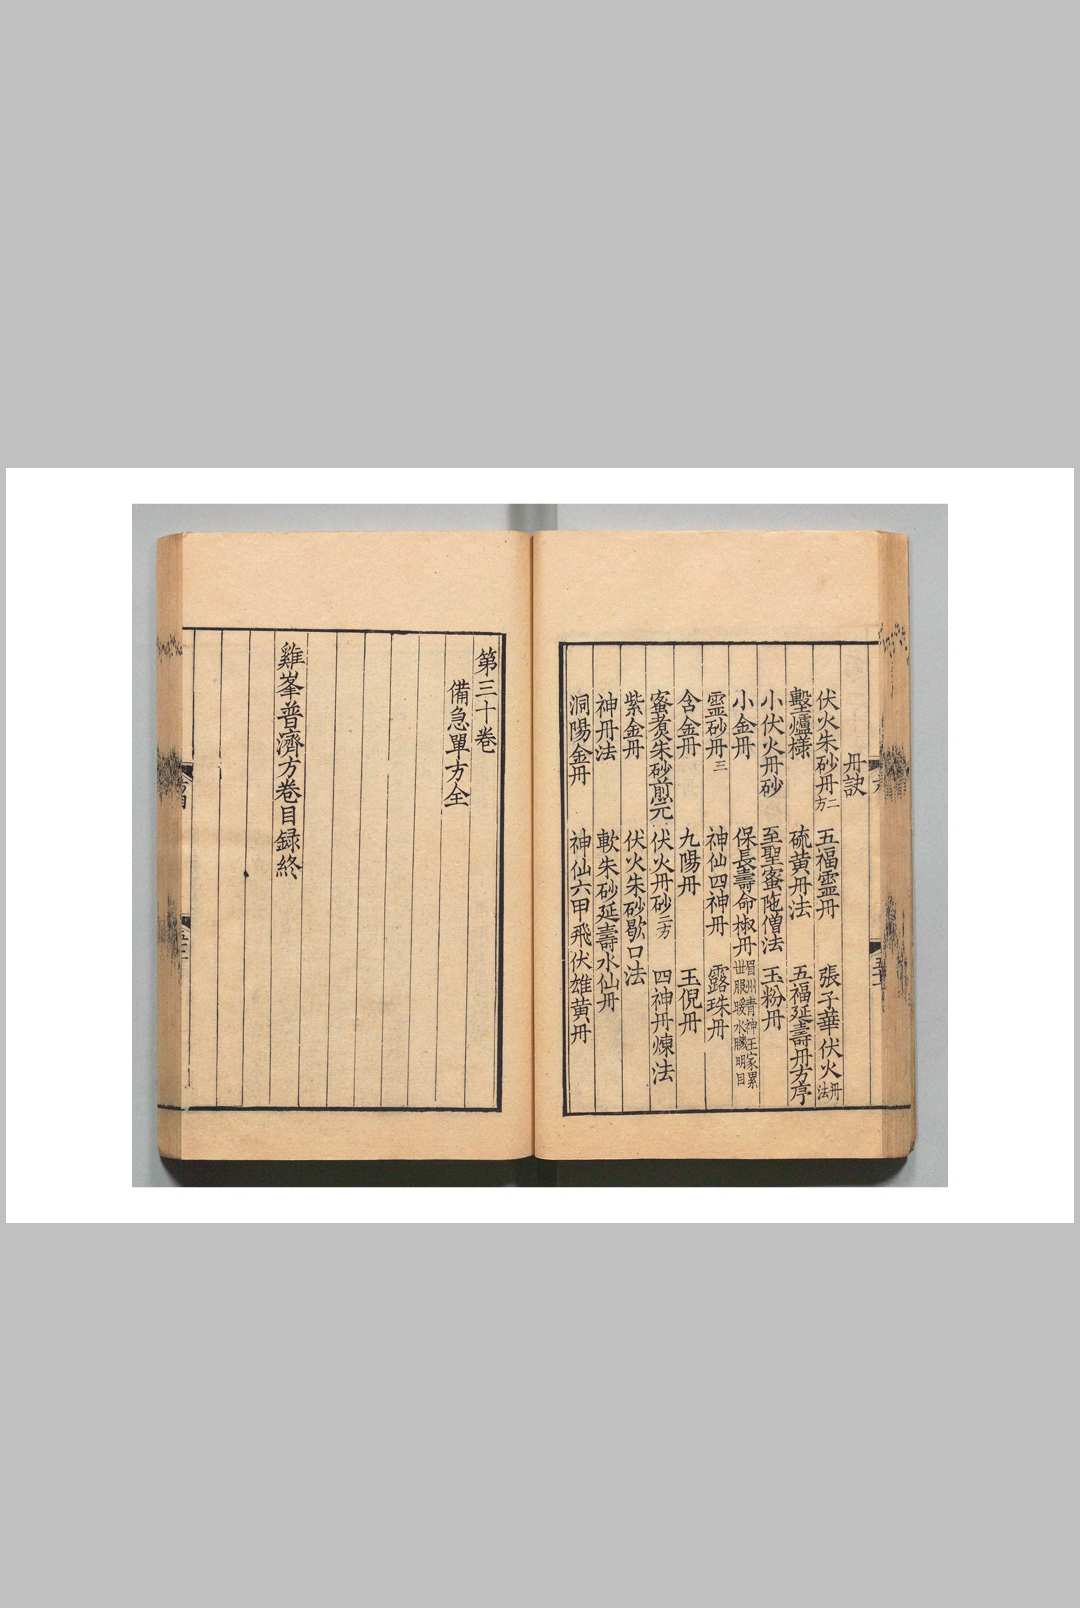 丹訣
伏火朱砂丹二方 五福靈丹 張子華伏火丹法
墼爐樣 硫黄丹法 五福延壽丹方序
小伏火丹砂 至聖蜜陁僧法 玉粉丹
小金丹 保長壽命椒丹眉州青神王家累世服暖水臟明目
霊砂丹三 神仙四神丹 露珠丹
含金丹 九陽丹 王倪丹
蜜煮朱砂煎元 伏火丹砂二方 四神丹煉法
紫金丹 伏火朱砂歇口法
神丹法 軟朱砂延壽水仙丹
洞陽金丹 神仙六甲飛伏雄黄丹
第三十卷
備急單方全
雞峯普濟方卷目録終